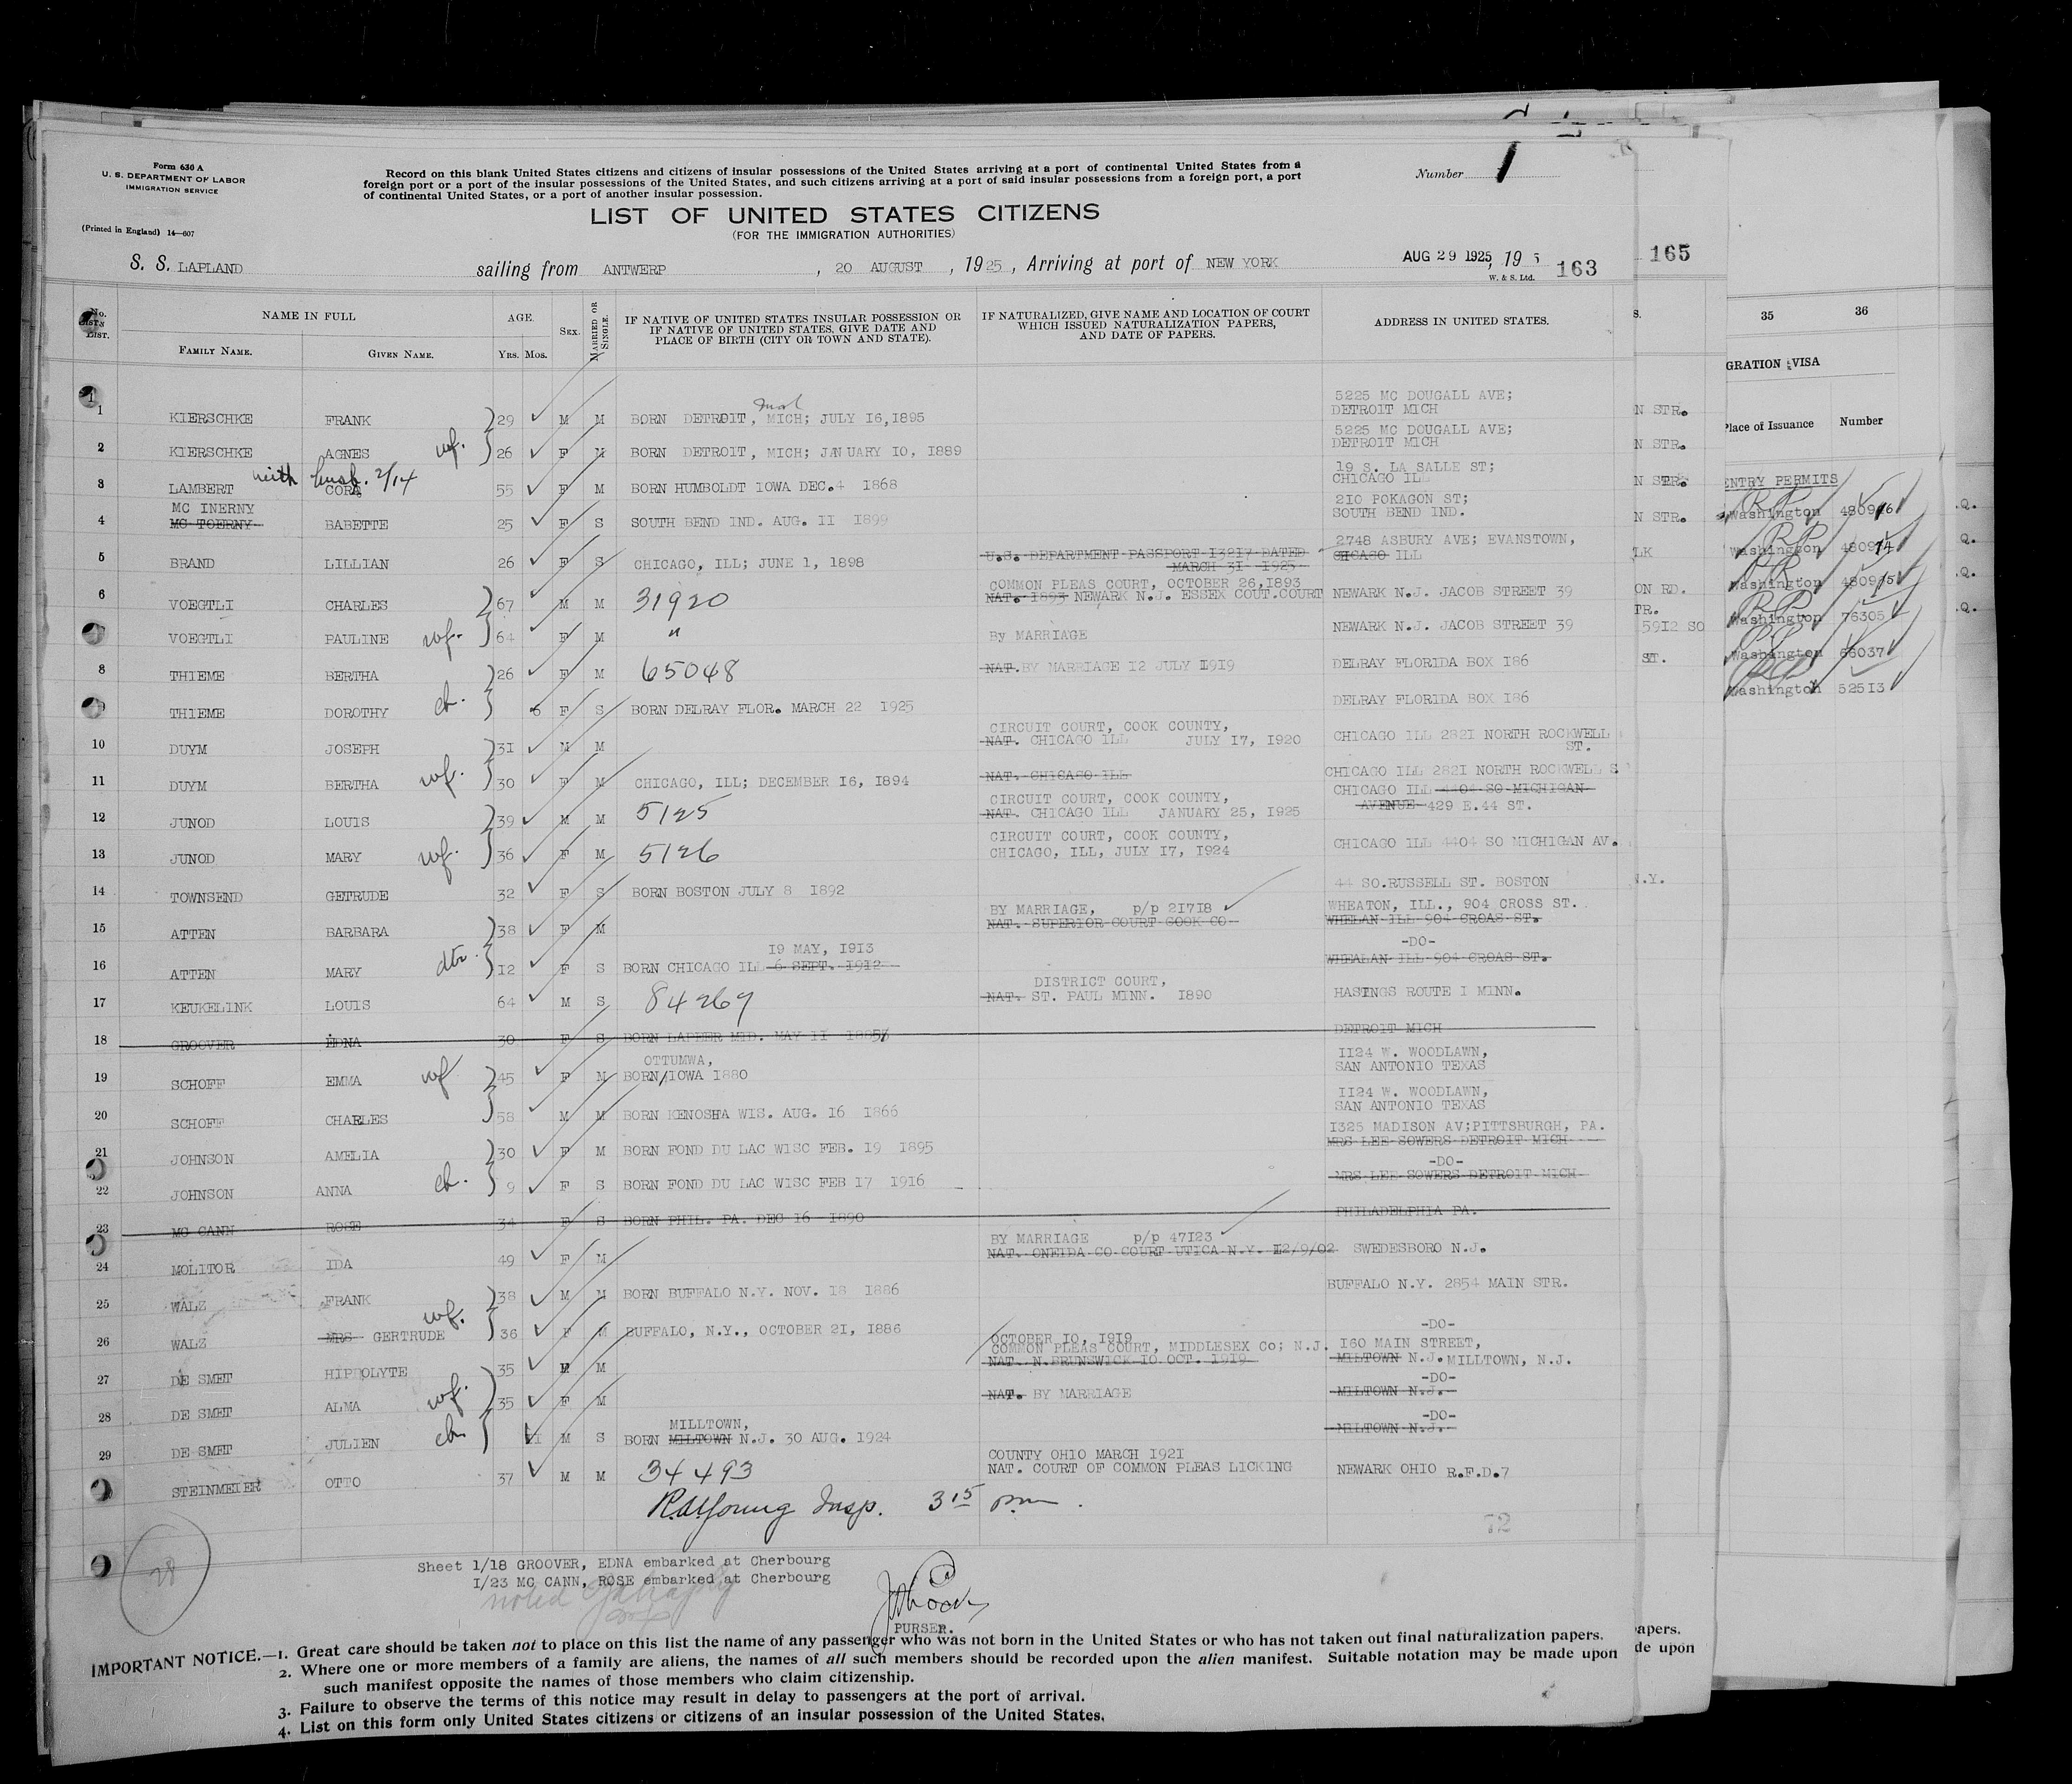 Form 630 A
U. S. DEPARTMENT OF LABOR
IMMIGRATION SERVICE
(Printed in England) 14—607
Record on this blank United States citizens and citizens of insular possessions of the United States arriving at a port of continental United States from a
foreign port or a port of the insular possessions of the United States, and such citizens arriving at a port of said insular possessions from a foreign port, a port
of continental United States, or a port of another insular possession.
Number 1
LIST OF UNITED STATES CITIZENS
(FOR THE IMMIGRATION AUTHORITIES)
S. S. LAPLAND sailing from ANTWERP, 20 AUGUST, 1925, Arriving at port of NEW YORK AUG 29 1925, 19 5
W. & S. Ltd. 163
165
No. ON LIST. NAME IN FULL AGE. SEX. MARRIED OR SINGLE. IF NATIVE OF UNITED STATES INSULAR POSSESSION OR IF NATIVE OF UNITED STATES, GIVE DATE AND PLACE OF BIRTH (CITY OR TOWN AND STATE). IF NATURALIZED, GIVE NAME AND LOCATION OF COURT WHICH ISSUED NATURALIZATION PAPERS, AND DATE OF PAPERS. ADDRESS IN UNITED STATES.
FAMILY NAME. GIVEN NAME. YRS. MOS.
5225 MC DOUGALL AVE;
1 KIERSCHKE FRANK 29 M M BORN DETROIT, MICH; JULY 16,1895 DETROIT MICH
5225 MC DOUGALL AVE;
2 KIERSCHKE AGNES wf. 26 F M BORN DETROIT, MICH; JANUARY 10, 1889 DETROIT MICH
with husb. 2/14 19 S. LA SALLE ST;
3 LAMBERT CORA 55 F M BORN HUMBOLDT IOWA DEC.4 1868 CHICAGO ILL
MC INERNY 210 POKAGON ST;
4 MC TOERNY BABETTE 25 F S SOUTH BEND IND. AUG. 11 1899 SOUTH BEND IND.
U.S. DEPARTMENT PASSPORT 13217 DATED 2748 ASBURY AVE; EVANSTOWN,
5 BRAND LILLIAN 26 F S CHICAGO, ILL; JUNE 1, 1898 MARCH 31 1925 CHICAGO ILL
COMMON PLEAS COURT, OCTOBER 26,1893
6 VOEGTLI CHARLES 67 M M 31920 NAT. 1893 NEWARK N.J. ESSEX COUT.COURT NEWARK N.J. JACOB STREET 39
VOEGTLI PAULINE wf. 64 F M " By MARRIAGE NEWARK N.J. JACOB STREET 39
8 THIEME BERTHA 26 F M 65048 NAT.BY MARRIAGE 12 JULY 1919 DELRAY FLORIDA BOX 186
9 THIEME DOROTHY ch. 6 F S BORN DELRAY FLOR. MARCH 22 1925 DELRAY FLORIDA BOX 186
CIRCUIT COURT, COOK COUNTY,
10 DUYM JOSEPH 31 M M NAT. CHICAGO ILL JULY 17, 1920 CHICAGO ILL 2821 NORTH ROCKWELL
ST.
11 DUYM BERTHA wf. 30 F M CHICAGO, ILL; DECEMBER 16, 1894 NAT. CHICAGO ILL CHICAGO ILL 2821 NORTH ROCKWELL S
CIRCUIT COURT, COOK COUNTY, CHICAGO ILL 4404 SO MICHIGAN
12 JUNOD LOUIS 39 M M 5125 NAT. CHICAGO ILL JANUARY 25, 1925 AVENUE 429 E.44 ST.
CIRCUIT COURT, COOK COUNTY,
13 JUNOD MARY wf. 36 F M 5126 CHICAGO, ILL, JULY 17, 1924 CHICAGO ILL 4404 SO MICHIGAN AV.
14 TOWNSEND GETRUDE 32 F S BORN BOSTON JULY 8 1892 44 SO.RUSSELL ST. BOSTON
BY MARRIAGE, p/p 21718 WHEATON, ILL., 904 CROSS ST.
15 ATTEN BARBARA 38 F M NAT. SUPERIOR COURT COOK CO WHELAN ILL 904 CROAS ST.
19 MAY, 1913 -DO-
16 ATTEN MARY dtr. 12 F S BORN CHICAGO ILL 6 SEPT. 1912 WHEALAN ILL 904 CROAS ST.
DISTRICT COURT,
17 KEUKELINK LOUIS 64 M S 84267 NAT. ST. PAUL MINN. 1890 HASINGS ROUTE 1 MINN.
18 GROOVER EDNA 30 F S BORN LAPEER MID. MAY 11 DETROIT MICH
OTTUMWA, 1124 W. WOODLAWN,
19 SCHOFF EMMA wf 45 F M BORN/IOWA 1880 SAN ANTONIO TEXAS
1124 W. WOODLAWN,
20 SCHOFF CHARLES 58 M M BORN KENOSHA WIS. AUG. 16 1866 SAN ANTONIO TEXAS
1325 MADISON AV;PITTSBURGH, PA.
21 JOHNSON AMELIA 30 F M BORN FOND DU LAC WISC FEB. 19 1895 MRS LEE SOWERS DETROIT MICH
-DO-
22 JOHNSON ANNA ch. 9 F S BORN FOND DU LAC WISC FEB 17 1916 MRS LEE SOWERS DETROIT MICH
23 MC CANN ROSE 34 F S BORN PHIL. PA. DEC 16 1890 PHILADELPHIA PA.
BY MARRIAGE p/p 47123
24 MOLITOR IDA 49 F M NAT. ONEIDA CO COURT UTICA N.Y. 12/9/02 SWEDESBORO N.J.
25 WALZ FRANK 38 M M BORN BUFFALO N.Y. NOV. 18 1886 BUFFALO N.Y. 2854 MAIN STR.
26 WALZ MRS GERTRUDE wf. 36 F M BUFFALO, N.Y., OCTOBER 21, 1886 -DO-
OCTOBER 10, 1919
COMMON PLEAS COURT, MIDDLESEX Co; N.J. 160 MAIN STREET,
27 DE SMET HIPPOLYTE 35 M M NAT. N.BRUNSWICK 10 OCT. 1919 MILTOWN N.J. MILLTOWN, N.J.
-DO-
28 DE SMET ALMA wf. 35 F M NAT. BY MARRIAGE MILTOWN N.J.
MILLTOWN, -DO-
29 DE SMET JULIEN ch 11 M S BORN MILTOWN N.J. 30 AUG. 1924 MILTOWN N.J.
COUNTY OHIO MARCH 1921
STEINMEIER OTTO 37 M M 34493 NAT. COURT OF COMMON PLEAS LICKING NEWARK OHIO R.F.D.7
Young Insp. 3 15 pm.
72
28
Sheet 1/18 GROOVER, EDNA embarked at Cherbourg
1/23 MC CANN, ROSE embarked at Cherbourg
noted
PURSER.
IMPORTANT NOTICE.—1. Great care should be taken not to place on this list the name of any passenger who was not born in the United States or who has not taken out final naturalization papers.
2. Where one or more members of a family are aliens, the names of all such members should be recorded upon the alien manifest. Suitable notation may be made upon
such manifest opposite the names of those members who claim citizenship.
3. Failure to observe the terms of this notice may result in delay to passengers at the port of arrival.
4. List on this form only United States citizens or citizens of an insular possession of the United States.
S.
N STR.
N STR.
N STR.
N STR.
LK
ON RD.
TR.
5912 SO
ST.
N.Y.
apers.
de upon
35 36
GRATION VISA
Place of Issuance Number
ENTRY PERMITS
Washington
Washington
Washington
Washington 76305
Washington 66037
Washington 52513
Q.
Q.
Q.
Q.